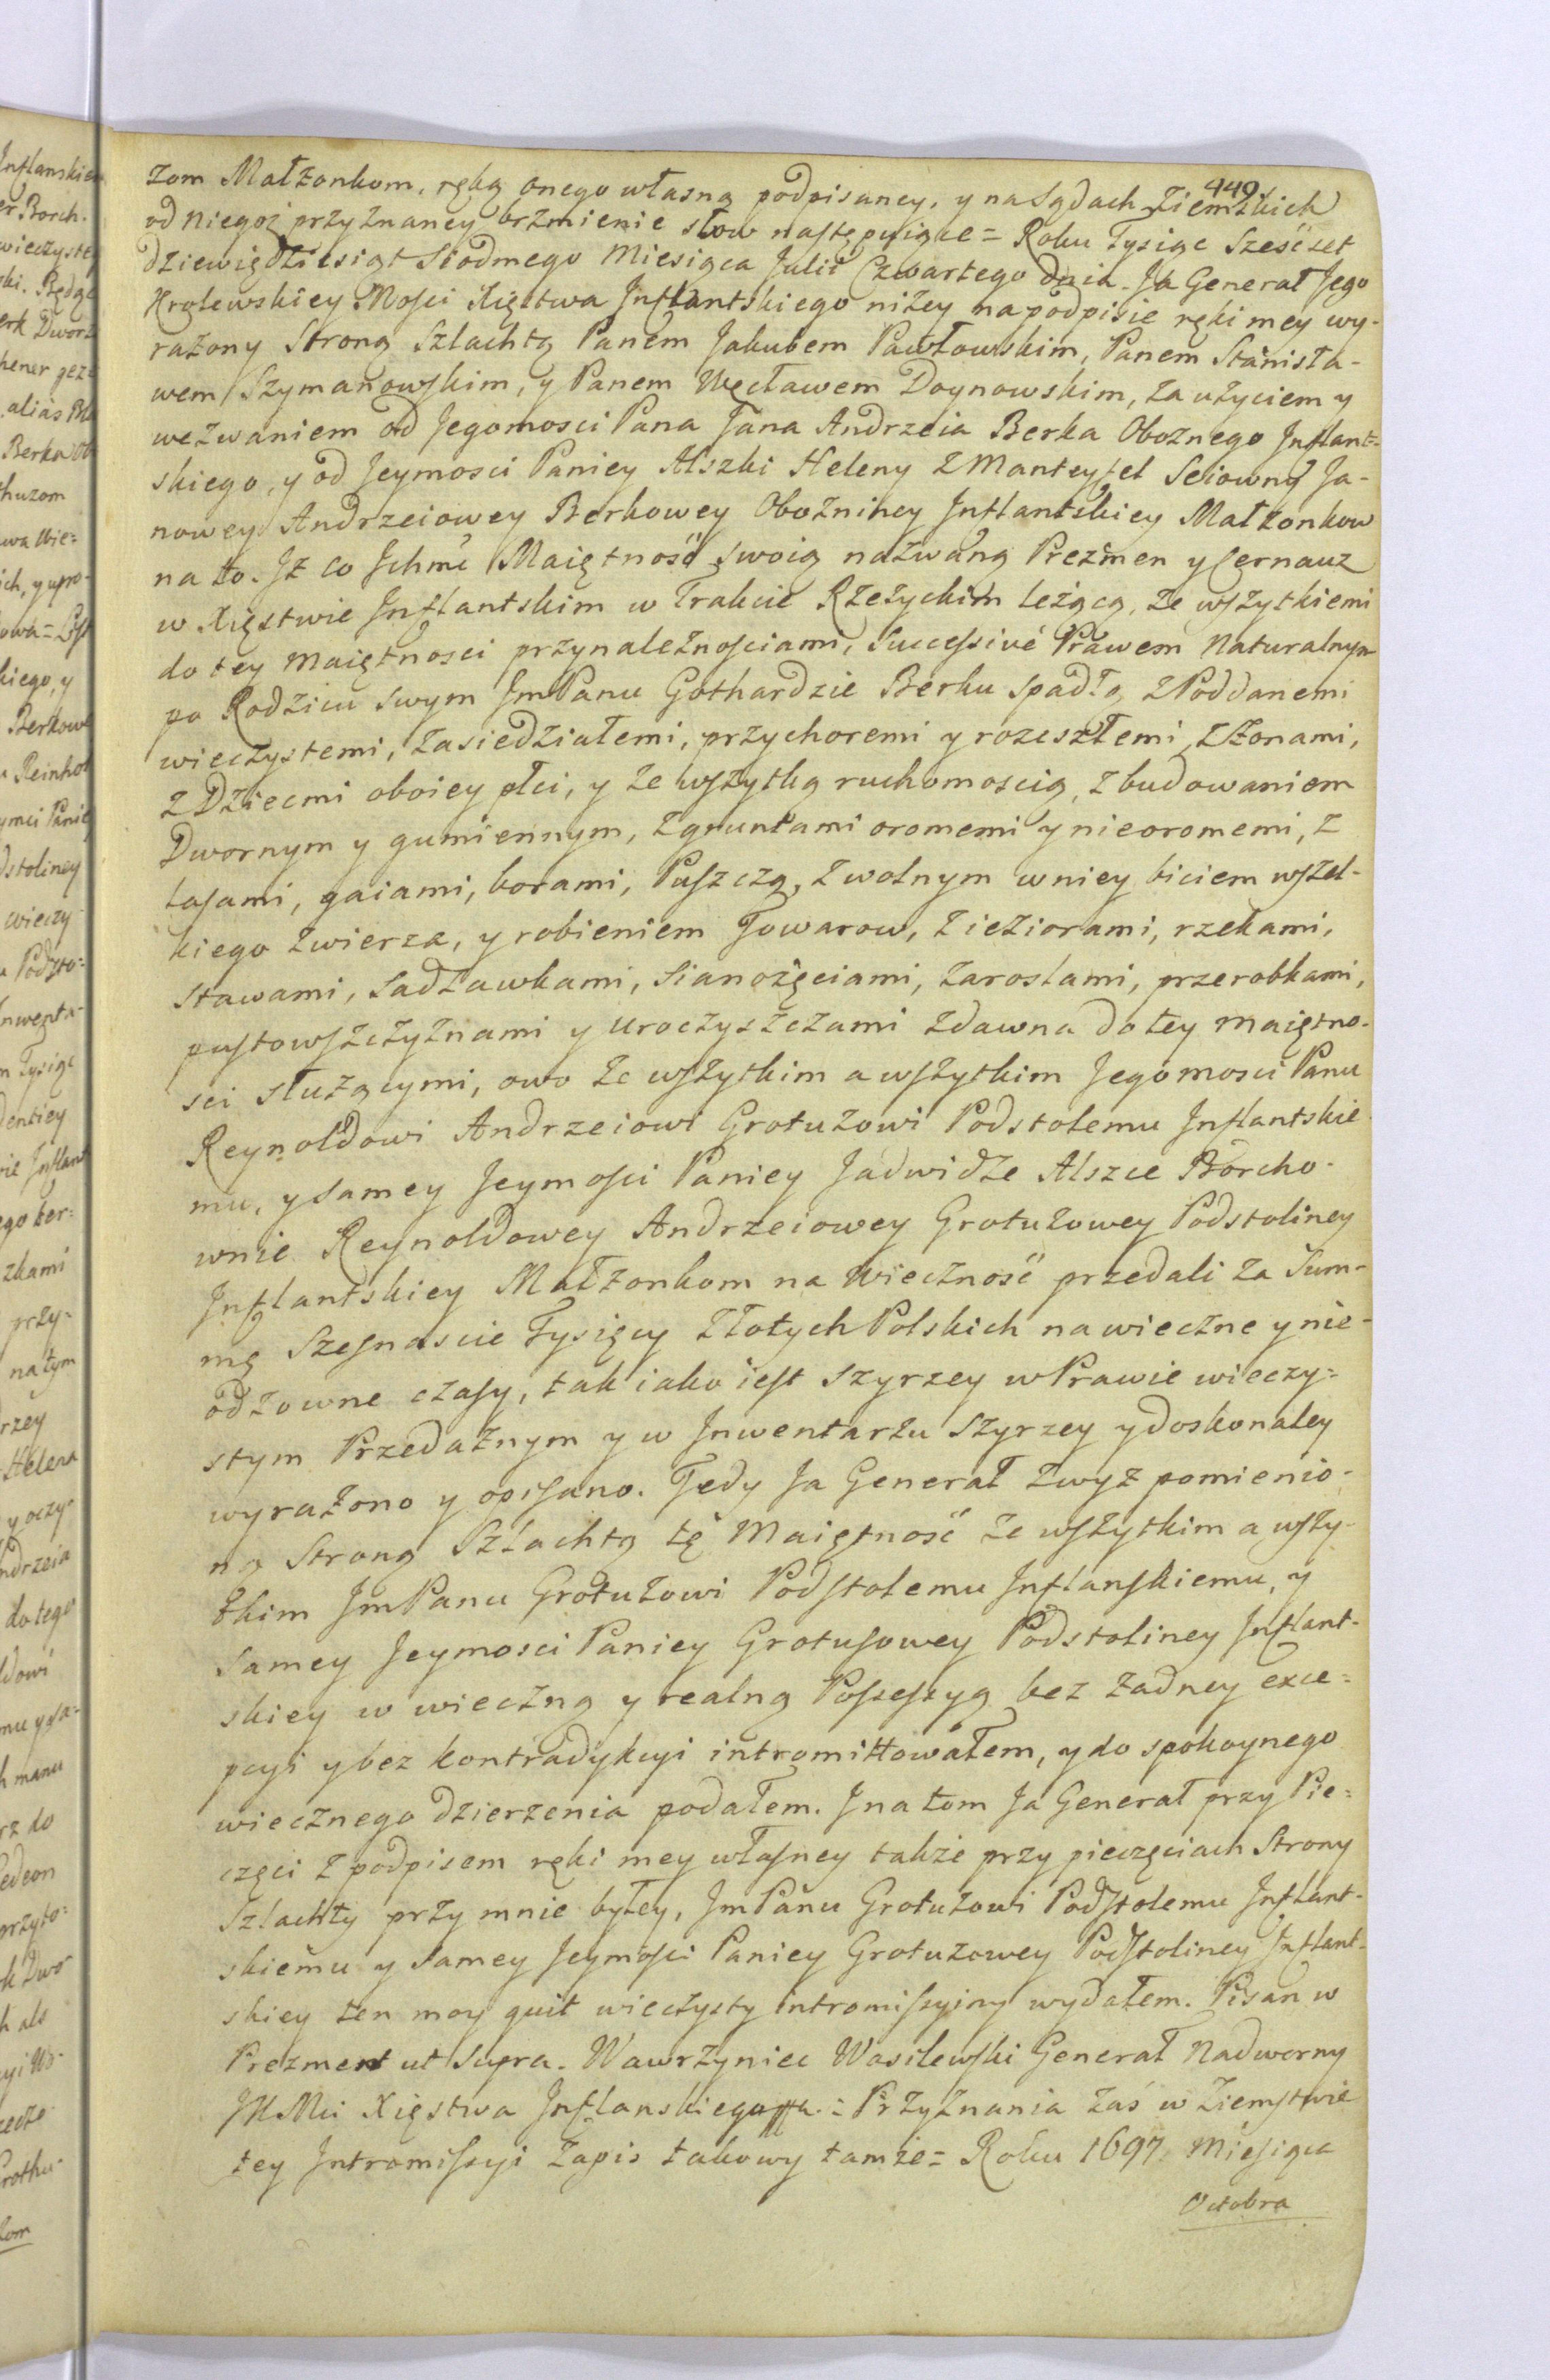 449.
zom Małzonkom, ręką onego własną podpisaney, y na Sądach Ziemskich
od niegoż przyznaney brzmienie słow następuiące = Roku Tysiąc Sześćset
Dziewiędziesiąt Siodmego Miesiąca Julii Czwartego dnia. Ja Generał Jego
Krolewskiey Mości Xięstwa Inflantskiego niżey na podpisie ręki mey wy-
rażony Stroną Szlachtą Panem Jakubem Pawłowskim, Panem Stanisła-
wem Szymanowskim, y Panem Węcławem Doynowskim, za użyciem y
wezwaniem od Jegomosci Pana Jana Andrzeia Berka Oboznego Inflant=
skiego, y od Jeymosci Paniey Alszki Heleny z Manteyfel Seiowny Ja-
nowey Andrzeiowey Berkowey Obozniney Inflantskiey Małżonkow
na to. Iż co Ichmć Maiętność swoią nazwaną Prezmen y Cernauz
w Xięstwie Inflantskim w Trakcie Rzeżyckim leżącą, ze wszytkiemi
do tey maiętnosci przynależnościami, Successivé Prawem Naturalnym
po Rodzicu swym Jm Panu Gothardzie Berku spadłą, z Poddanemi
wieczystemi, zasiedziałemi, przychoremi y rozeszłemi, z Żonami,
z Dziecmi oboiey płci, y ze wszytką ruchomoscią, z budowaniem
Dwornym y gumiennym, z gruntami oromemi y nieoromemi, z
lasami, gaiami, borami, Puszczą, z wolnym w niey biciem wszel-
kiego zwierza, y robieniem Towarow, z ieziorami, rzekami,
stawami, sadzawkami, sianożęciami, zaroslami, przerobkami,
pustowszczyznami y uroczyszczami zdawna do tey maiętno-
sci służącymi, owo ze wszytkim a wszytkim Jegomosci Panu
Reynoldowi Andrzeiowi Grotuzowi Podstolemu Inflantskie-
mu, y samey Jeymości Paniey Jadwidze Alszce Borcho-
wnie Reynoldowey Andrzeiowey Grotuzowey Podstoliney
Inflantskiey Małżonkom na wieczność przedali za Sum-
mę Szesnascie Tysięcy Złotych Polskich na wieczne y nie-
odzowne czasy, tak iako iest szyrzey w Prawie wieczy=
stym Przedażnym y w Inwentarzu szyrzey y doskonaley
wyrażono y opisano. Tedy Ja Generał zwyż pomienio-
ną Stroną Szlachtą tę Maiętność ze wszytkim a wszy-
tkim Jm Panu Grotuzowi Podstolemu Inflanskiemu, y
samey Jeymosci Paniey Grotusowey Podstoliney Inflant-
skiey w wieczną y realną Possessyą bez żadney exce=
pcyi y bez kontradykcyi intromittowałem, y do spokoynego
wiecznego dzierzenia podałem. I na tom Ja Generał przy Pie=
częci z podpisem ręki mey własney także przy pieczęciach Strony
Szlachty przy mnie byłey, Jm Panu Grotuzowi Podstolemu Inflant-
skiemu y samey Jeymości Paniey Grotuzowey Podstoliney Inflant-
skiey ten moy quit wieczysty intromissyiny wydałem. Pisan w
Prezment ut supra. Wawrzyniec Wasilewski Generał Nadworny
JKMci Xięstwa Inflanskiego = Przyznania zaś w Ziemstwie
tey Intromissyi zapis takowy tamże = Roku 1697 Miesiąca
Octobra